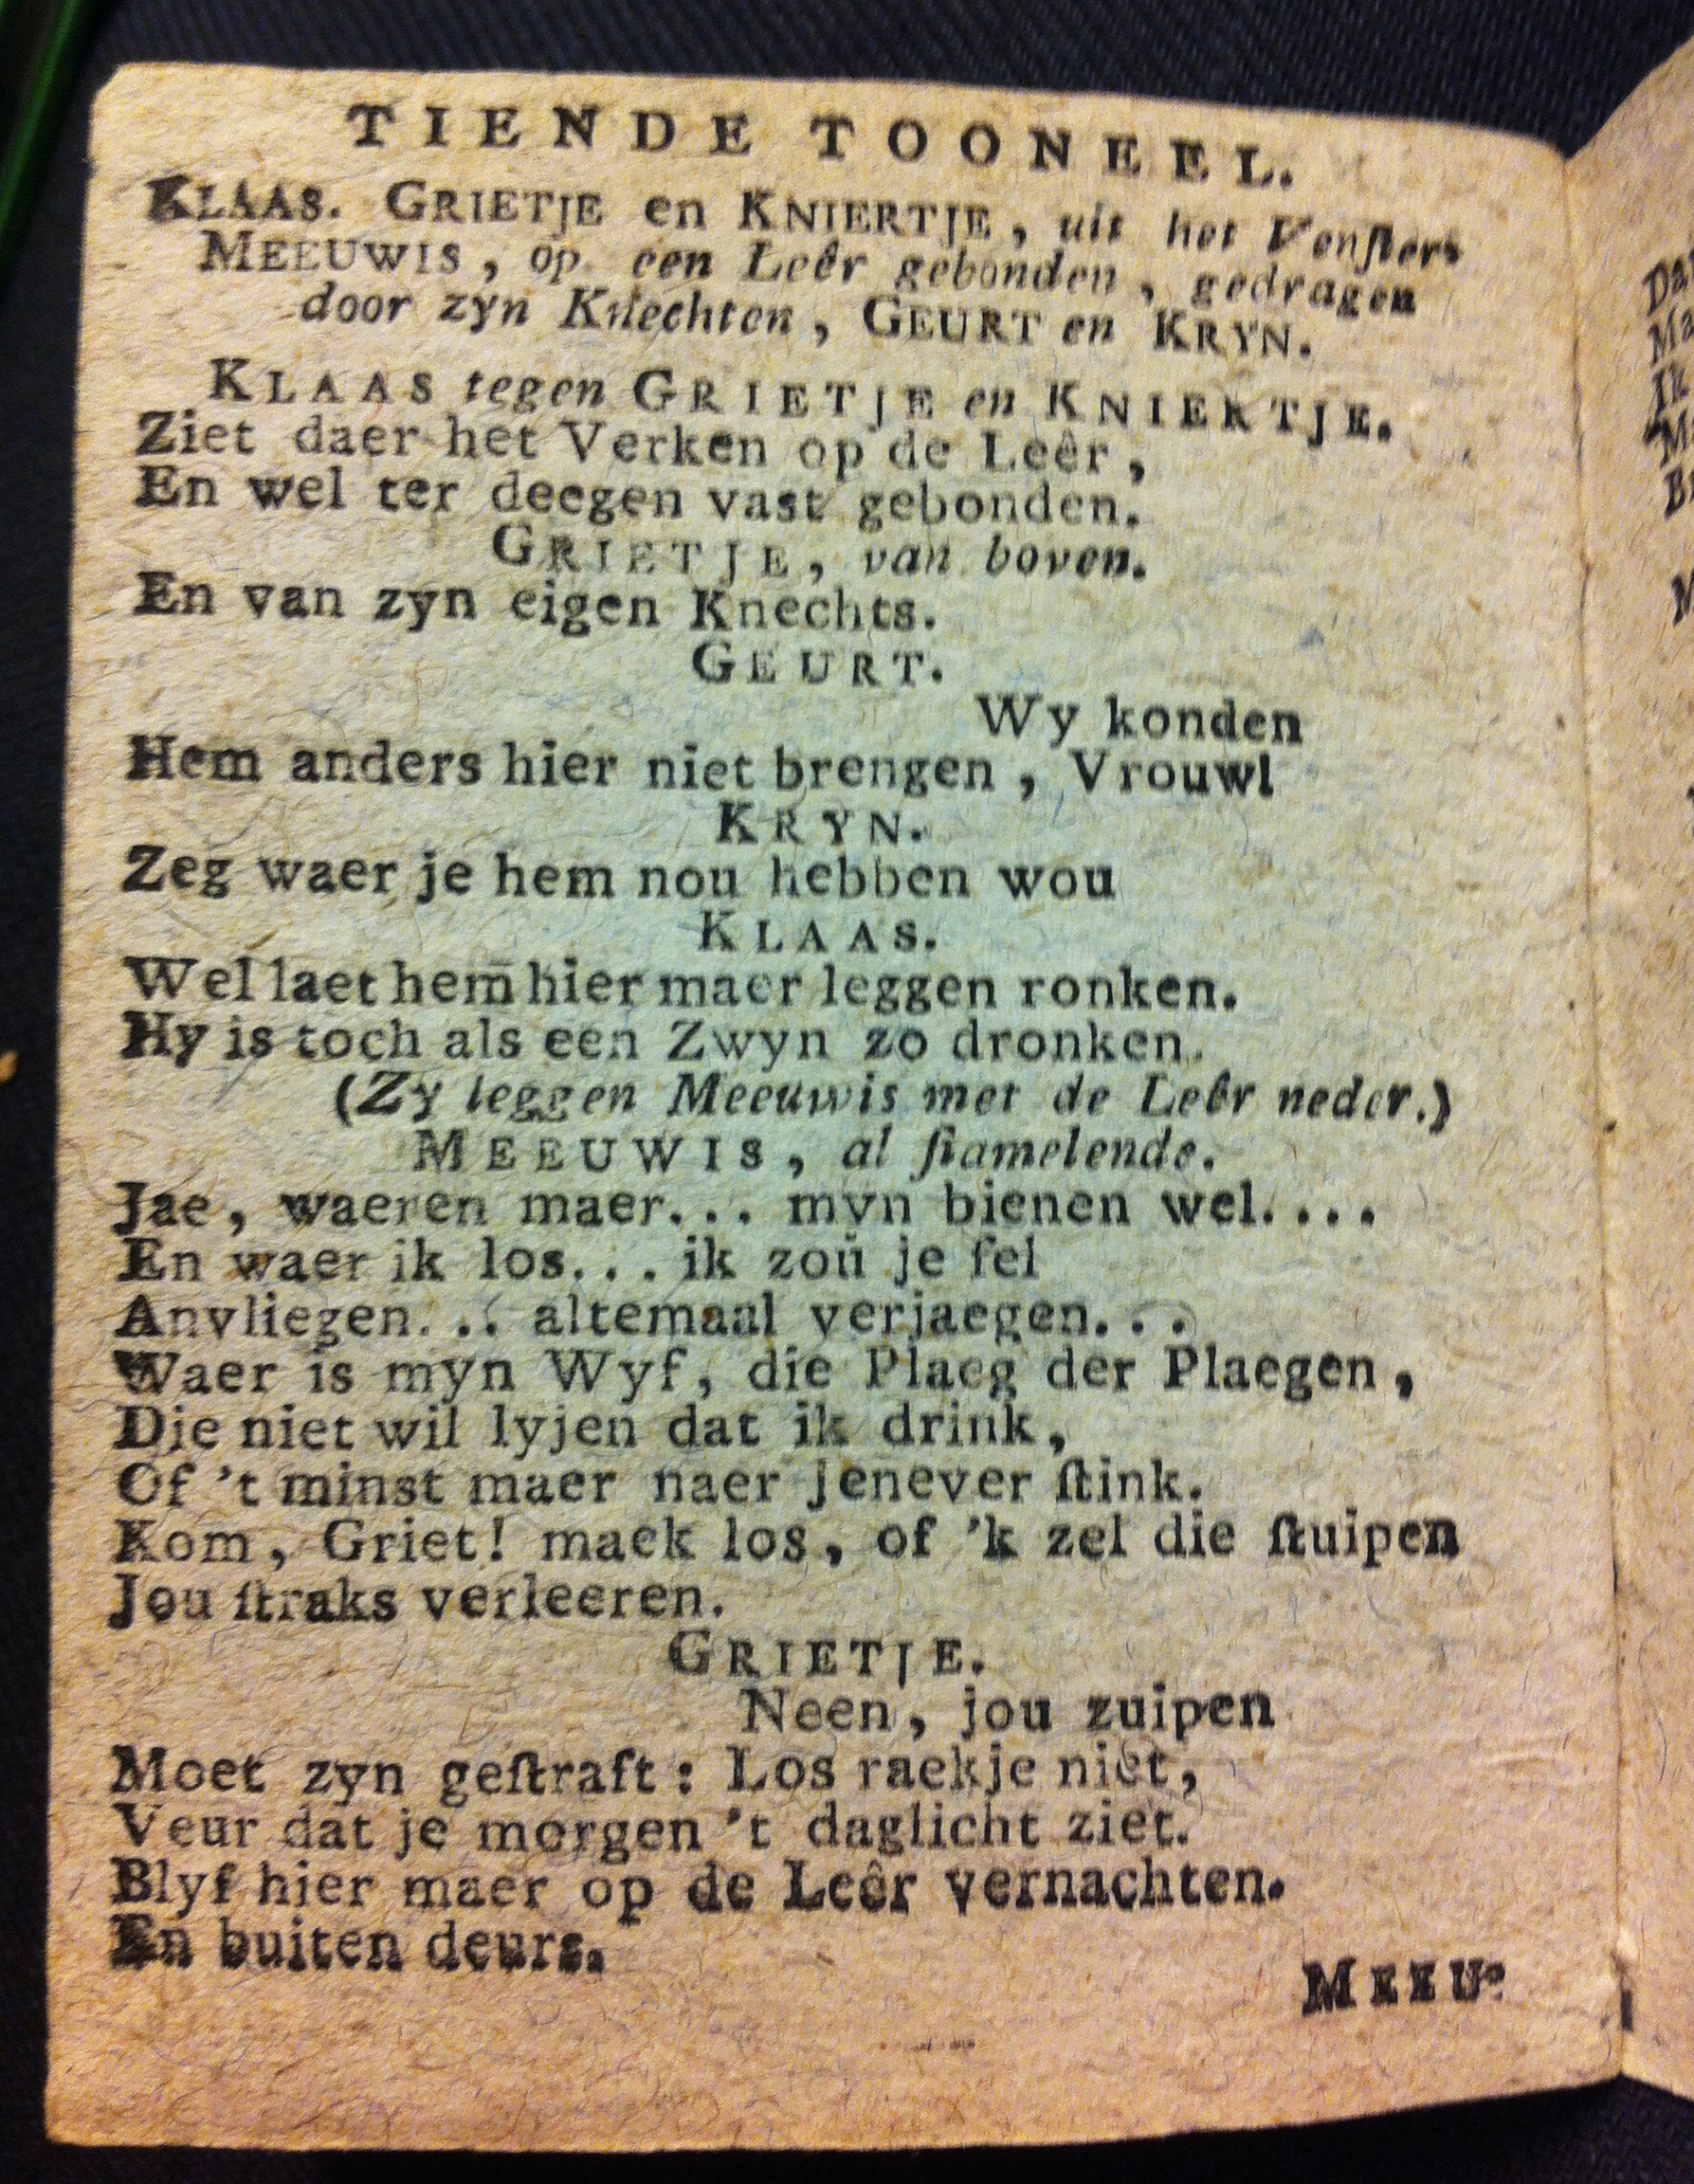 TIENDE TOONEEL.
KLAAS. GRIETJE en KNIERTJE, uit het Venſter.
MEEUWIS, op een Leêr gebonden, gedragen
door zyn Knechten, GEURT en KRYN.
KLAAS tegen GRIETJE en KNIERTJE.
Ziet daer het Verken op de Leêr,
En wel ter deegen vast gebonden.
GRIETJE, van boven.
En van zyn eigen Knechts.
GEURT.
Wy konden
Hem anders hier niet brengen, Vrouw!
KRYN.
Zeg waer je hem nou hebben wou
KLAAS.
Wel laet hem hier maer leggen ronken.
Hy is toch als een Zwyn zo dronken.
(Zy leggen Meeuwis met de Leêr neder.)
MEEUWIS, al ſtamelende.
Jae, waeren maer... myn bienen wel....
En waer ik los... ik zou je fel
Anvliegen... altemaal verjaegen...
Waer is myn Wyf, die Plaeg der Plaegen,
Die niet wil lyjen dat ik drink,
Of 't minst maer naer Jenever ſtink.
Kom, Griet! maek los, of 'k zel die ſtuipen
Jou ſtraks verleeren.
GRIETJE.
Neen, jou zuipen
Moet zyn geſtraft: Los raekje niet,
Veur dat je morgen 't daglicht ziet.
Blyf hier maer op de Leêr vernachten.
En buiten deurs.
MEEU-